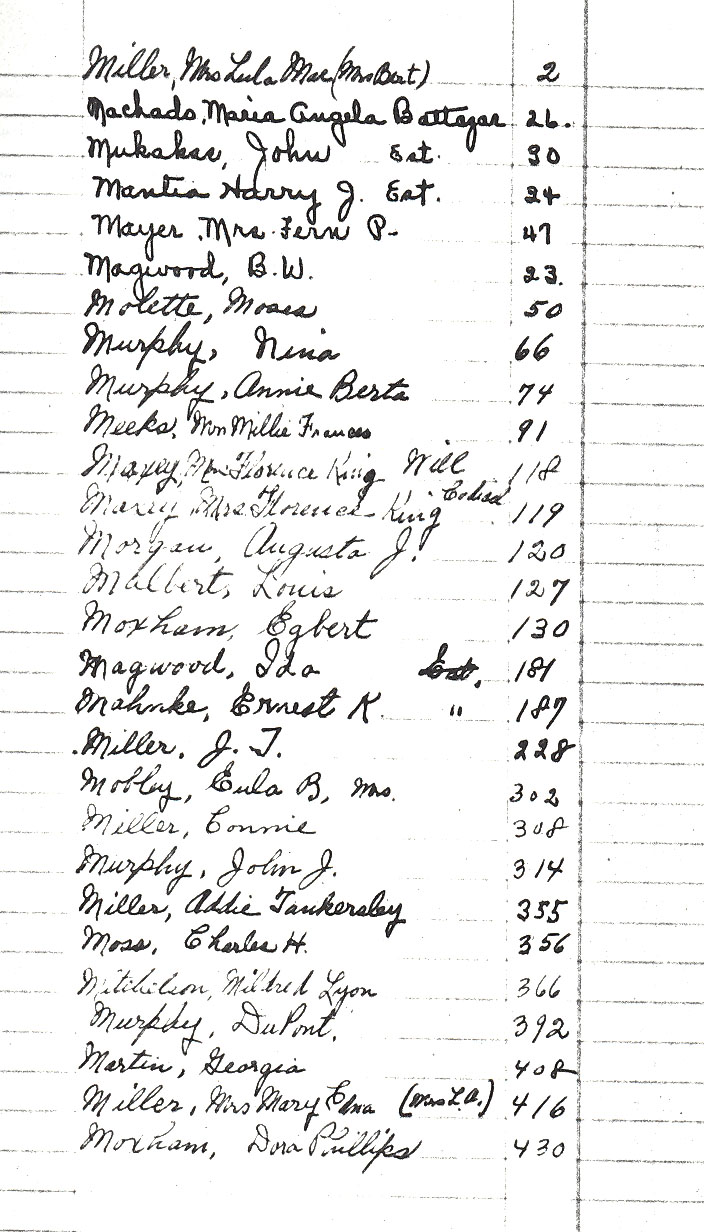 Miller, Mrs Lula Mae (Mrs Bert) 2
Machado, Maria Angela Battazar 26.
Mukakas, John Est. 30
Mantia Harry J. Est. 24
Mayer Mrs. Fern P- 47
Magwood, B.W. 23.
Molette, Moses 50
Murphy, Nina 66
Murphy, Annie Berta 74
Meeks, Millie Frances 91
Maxey, Mrs Florence King Will 118
Maxey Mrs Florence King Codicil 119
Morgan, Augusta J. 120
Malbert, Louis 127
Moxham, Egbert 130
Magwood, Ida Est. 181
Mahnke, Ernest K. " 187
Miller, J. T. 228
Mobley, Eula B, Mrs. 302
Miller, Connie 308
Murphy, John J. 314
Miller, Addie Tankersley 355
Moss, Charles H. 356
Mitchelson, Mildred Lyon 366
Murphy, DuPont. 392
Martin, Georgia 408
Miller, Mrs Mary Edna (Mrs L.A.) 416
Moxham, Dora Phillips 430